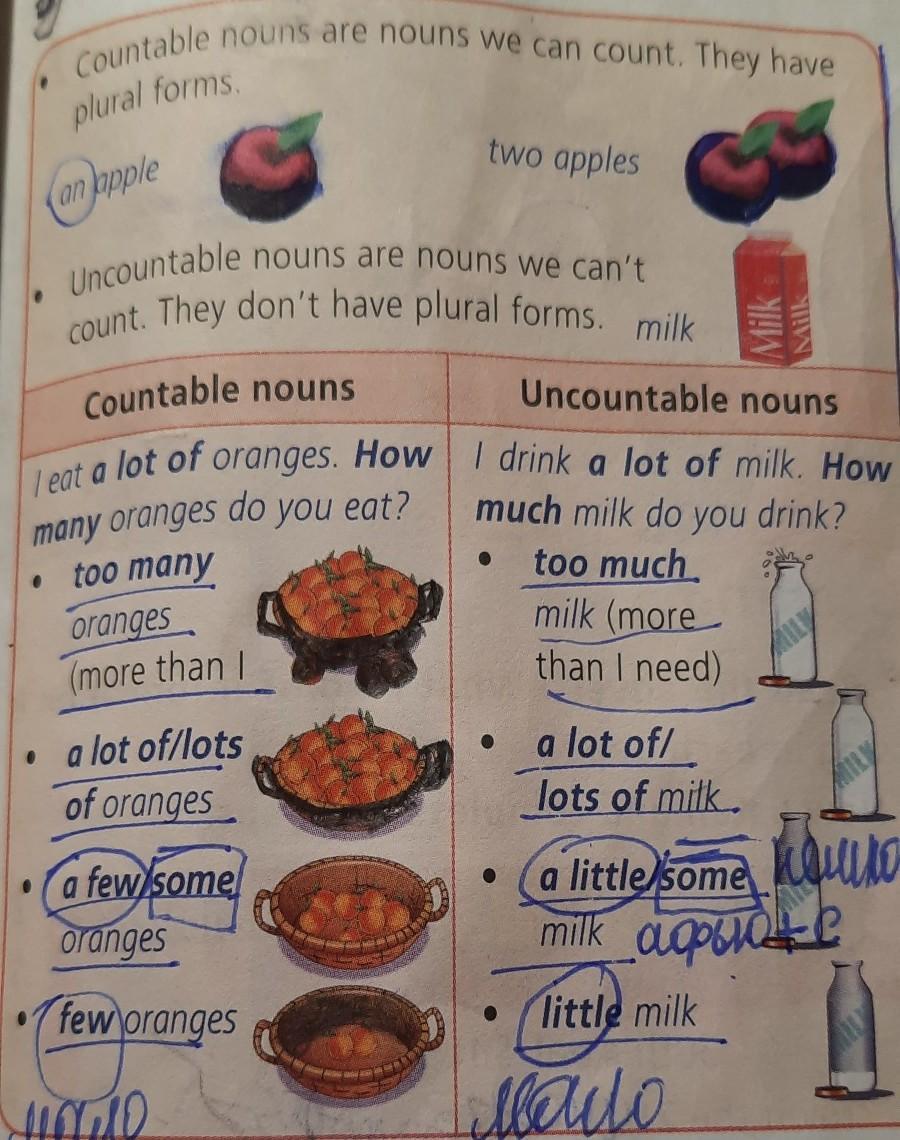 • Countable nouns are nouns we can count. They have
plural forms.
an apple
two apples
• Uncountable nouns are nouns we can't
count. They don't have plural forms. milk
Milk Milk
Countable nouns
I eat a lot of oranges. How
many oranges do you eat?
• too many
oranges
(more than I
• a lot of/lots
of oranges
• a few/some
oranges
• few oranges
мало
Uncountable nouns
I drink a lot of milk. How
much milk do you drink?
• too much
milk (more
than I need)
MILK
• a lot of/
lots of milk
MILK
• a little/some
milk
MILK
• little milk
MILK
мало